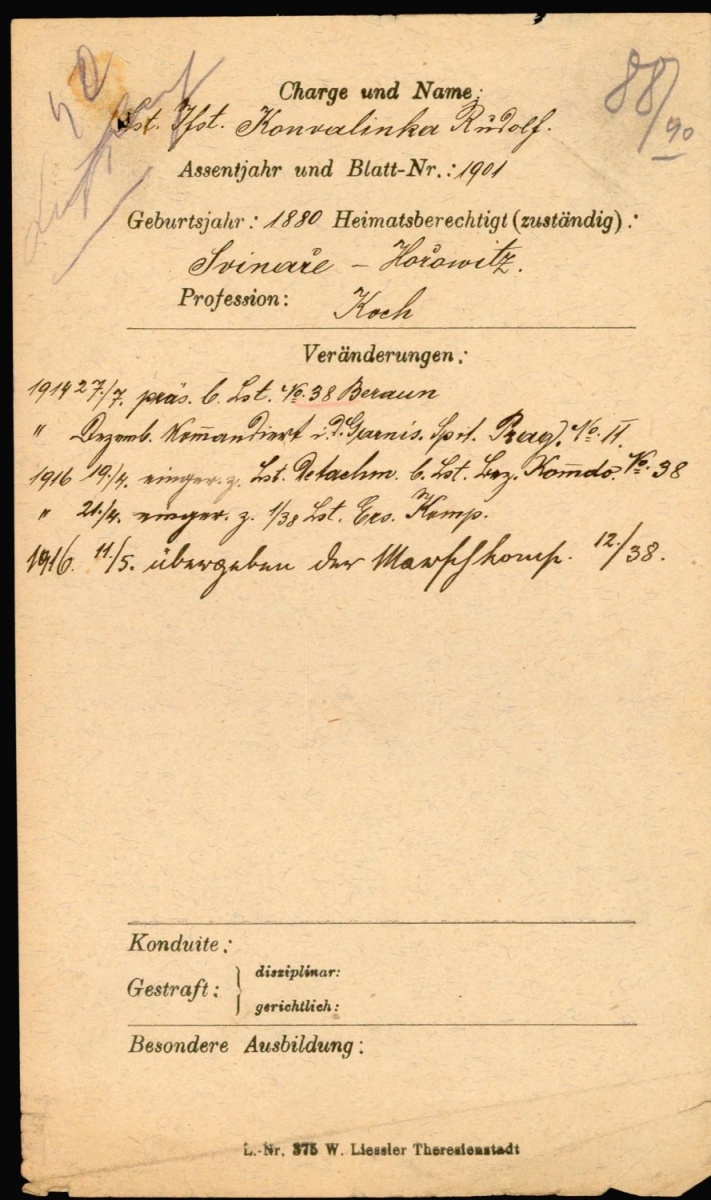 88/90
Charge und Name:
Lst. Ifst. Konvalinka Rudolf.
Assentjahr und Blatt-Nr.: 1901
Geburtsjahr: 1880 Heimatsberechtigt (zuständig):
Svinaře - Hořowitz.
Profession: Koch
Veränderungen:
1914 27./7. präs. b. Lst. No. 38 Beraun
" Dezemb. Kom̄andiert i. d. Garnis. Spit. Prag. No. 11.
1916 19./4. einger. z. Lst. Detachm. b. Lst. Bez. Kom̄do. No. 38
" 21./4. einger. z. 1/38 Lst. Ers. Komp.
1916. 11/5. übergeben der Marschkomp. 12./38.
Konduite:
Gestraft: disziplinar:
gerichtlich:
Besondere Ausbildung:
L.-Nr. 375 W. Liessler Theresienstadt